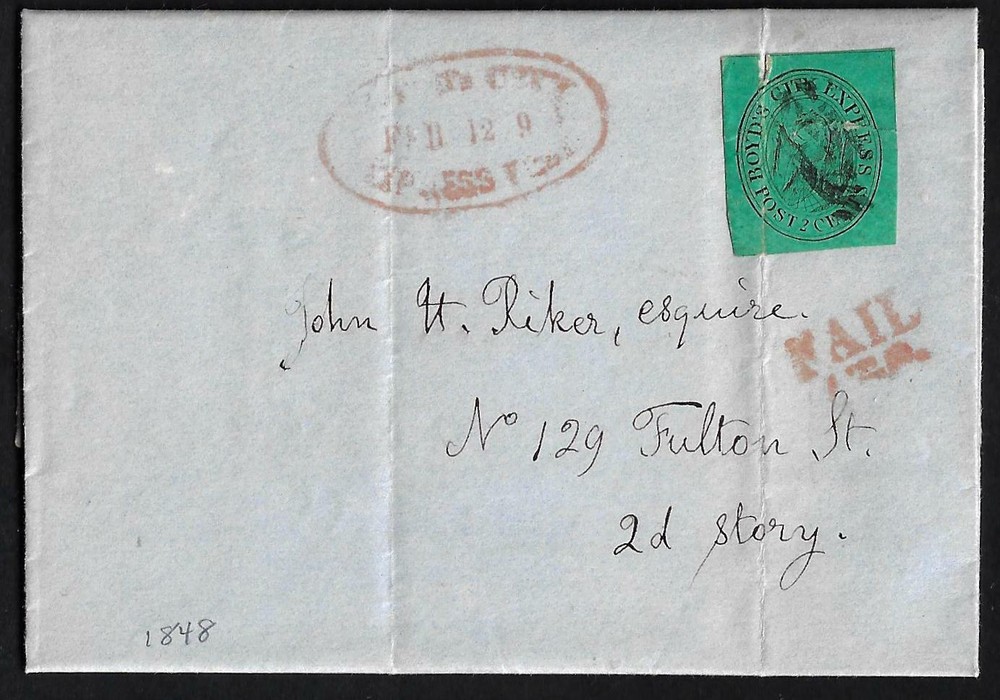 FEB 12 9
BOYD'S CITY EXPRESS
POST 2 CE
John H. Riker, esquire.
No 129 Fulton St.
2d story.
1848